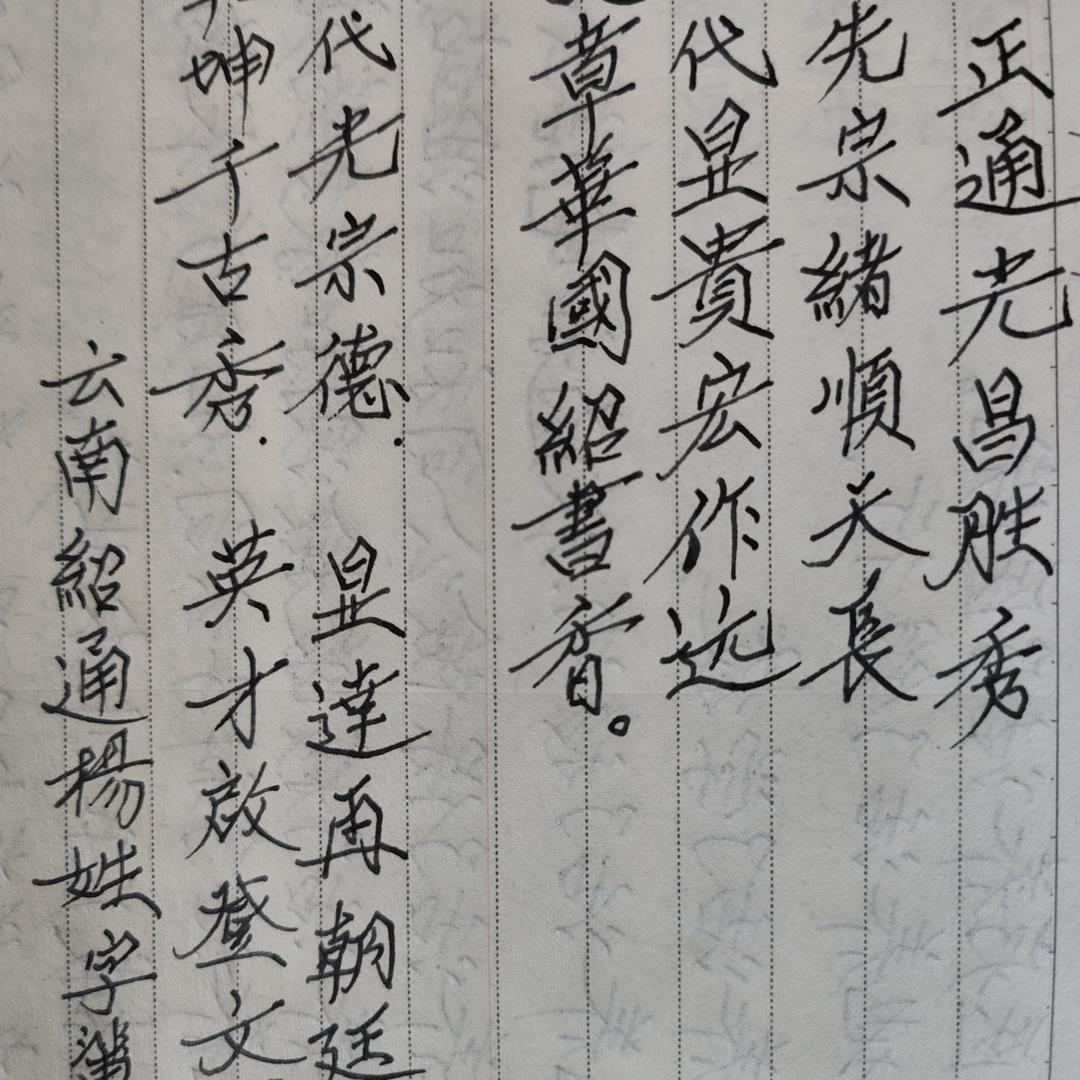 正通光昌胜秀
先宗緒順天長
代显貴宏作远
章華國紹書香。
代光宗德. 显達再朝廷
坤千古秀. 英才啟登文
云南紹通楊姓字